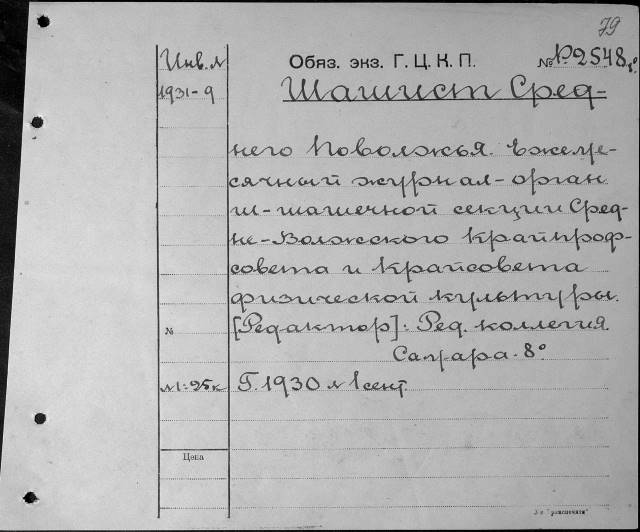 79
Инв. №
Обяз. экз. Г. Ц. К. П.
№ Р2548.
1931-9
Шашист Сред-
него Поволжья. Ежеме-
сячный журнал-орган
ш-шашечной секции Сред-
не-Волжского Крайпроф-
совета и Крайсовета
физической культуры.
№
[Редактор]: Ред. коллегия.
Самара. 8°
№1:25к
Г. 1930 № 1 сент.
Цена